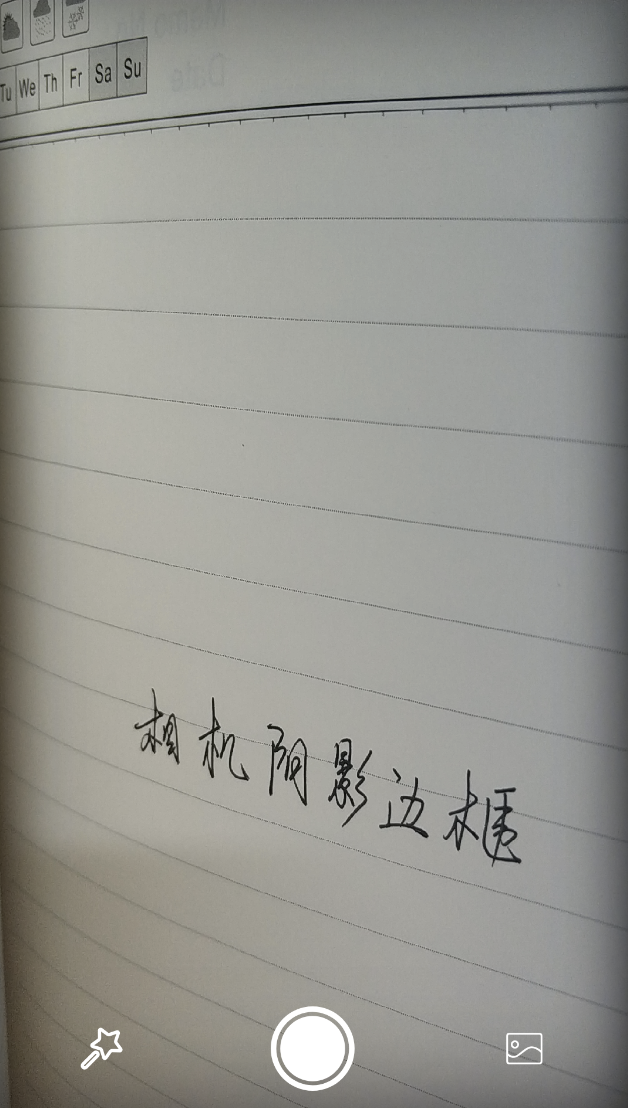 Tu We Th Fr Sa Su
相机阴影边框